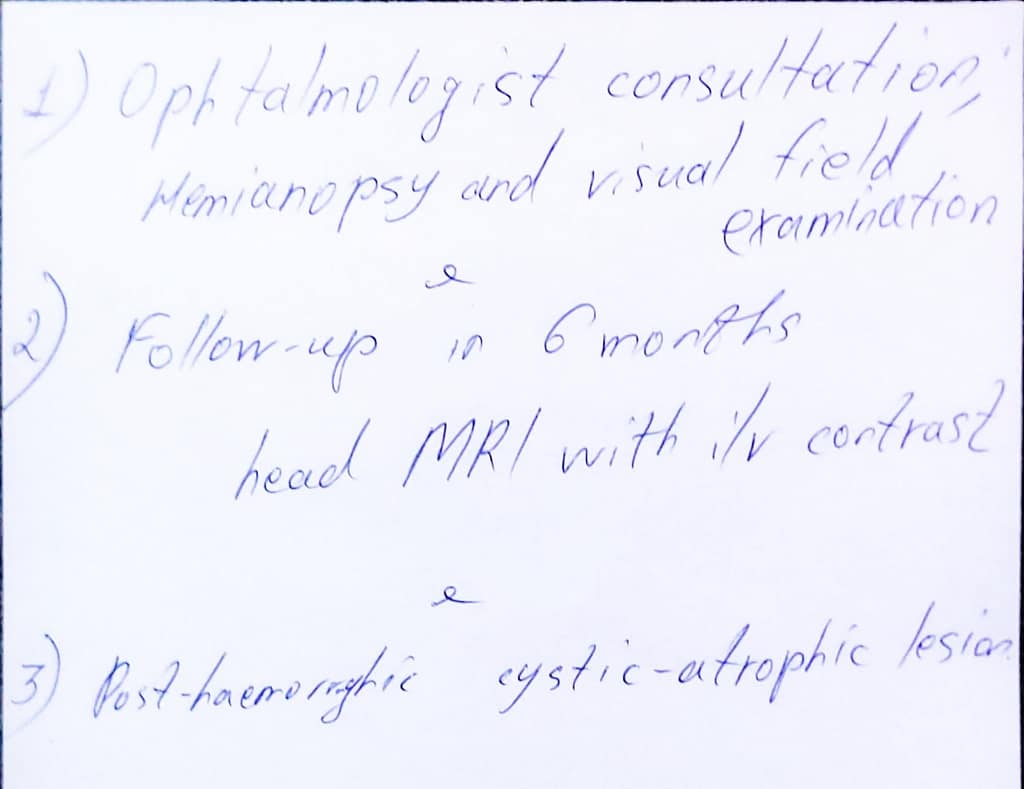 1) Ophtalmologist consultation;
Hemianopsy and visual field
examination
2) Follow-up in 6 months
head MRI with i/v contrast
3) Post-haemorrghic cystic-atrophic lesion